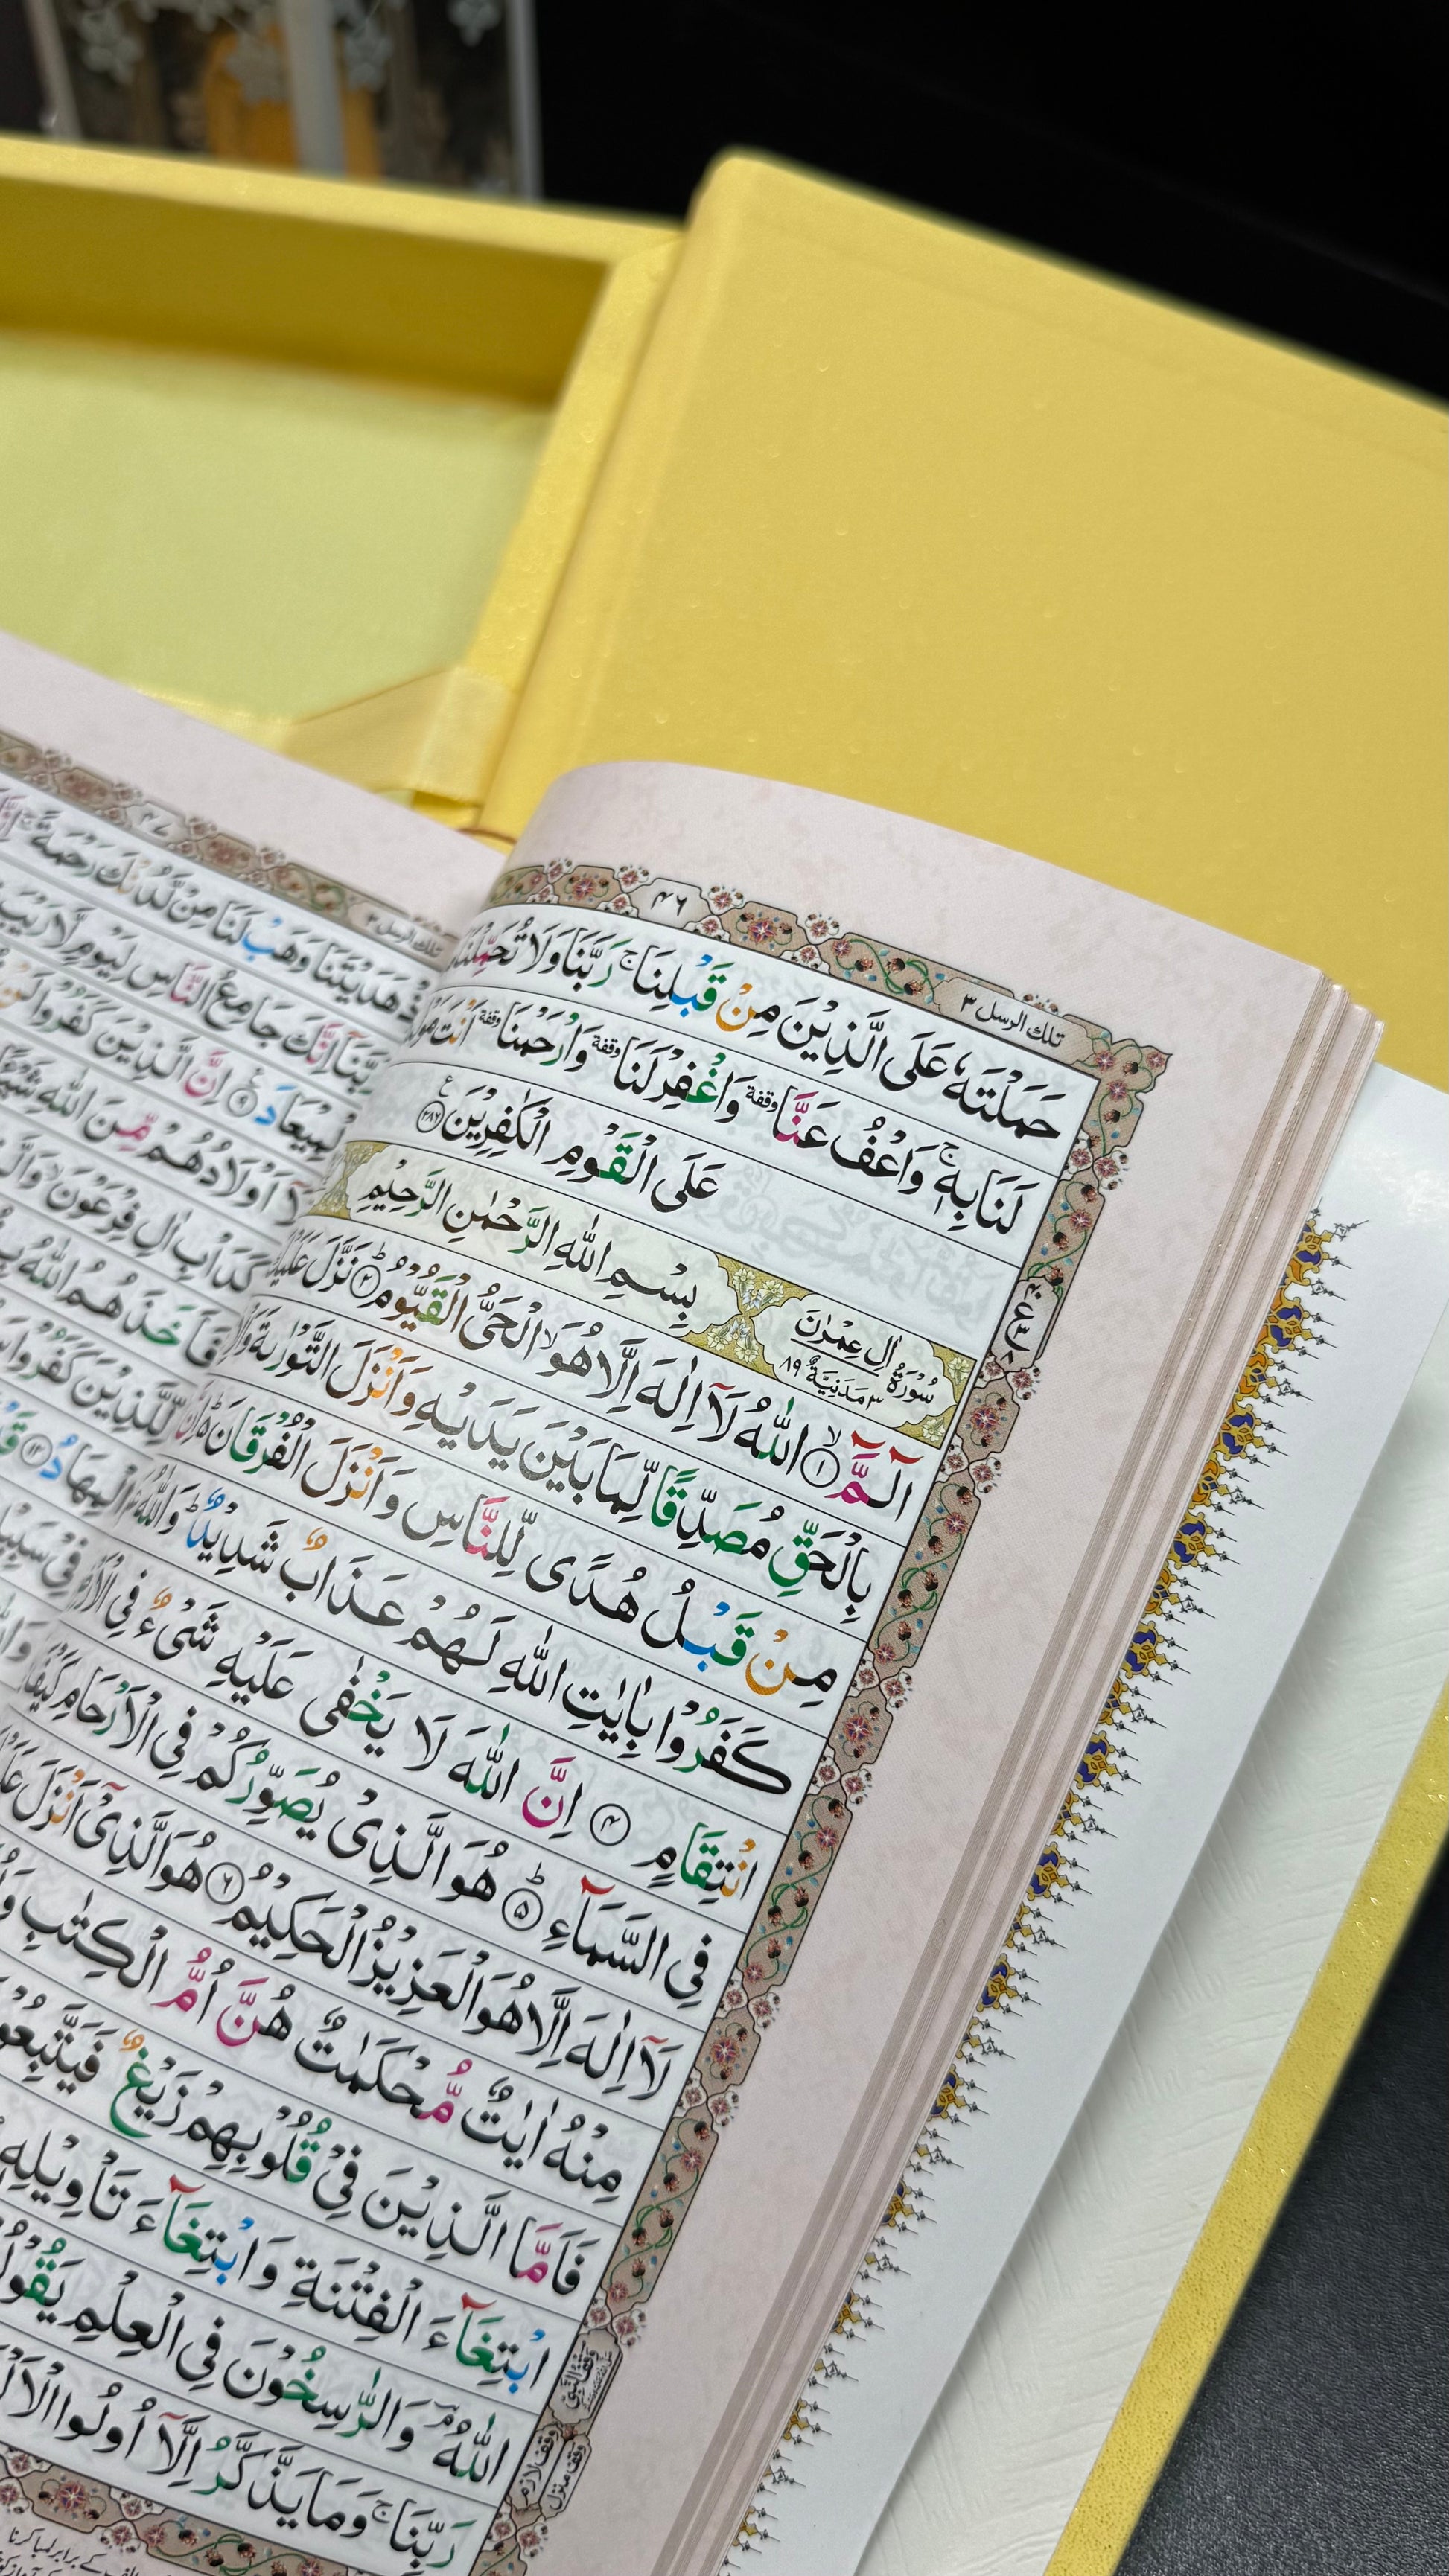 ٤٦
تلك الرسل ٣
حَمَلْتَهٗ عَلَى الَّذِيْنَ مِنْ قَبْلِنَا ۚ رَبَّنَا وَلَا تُحَمِّلْنَا
لَنَا بِهٖ ۚ وَاعْفُ عَنَّا ۥ وقفة وَاغْفِرْ لَنَا ۥ وقفة وَارْحَمْنَا ۥ وقفة اَنْتَ
عَلَى الْقَوْمِ الْكٰفِرِيْنَ ۝٢٨٦
سُوْرَةُ اٰلِ عِمْرٰنَ ٣ مَدَنِيَّةٌ ٨٩
بِسْمِ اللّٰهِ الرَّحْمٰنِ الرَّحِيْمِ
الٓمّٓ ۝١ اللّٰهُ لَآ اِلٰهَ اِلَّا هُوَ ۙ الْحَيُّ الْقَيُّوْمُ ۝٢ نَزَّلَ
بِالْحَقِّ مُصَدِّقًا لِّمَا بَيْنَ يَدَيْهِ وَاَنْزَلَ التَّوْرٰىةَ
مِنْ قَبْلُ هُدًى لِّلنَّاسِ وَاَنْزَلَ الْفُرْقَانَ ۗ
كَفَرُوْا بِاٰيٰتِ اللّٰهِ لَهُمْ عَذَابٌ شَدِيْدٌ ۗ وَاللّٰهُ
انْتِقَامٍ ۝٤ اِنَّ اللّٰهَ لَا يَخْفٰى عَلَيْهِ شَيْءٌ فِي
فِي السَّمَآءِ ۝٥ هُوَ الَّذِيْ يُصَوِّرُكُمْ فِي الْاَرْحَامِ كَيْفَ
لَآ اِلٰهَ اِلَّا هُوَ الْعَزِيْزُ الْحَكِيْمُ ۝٦ هُوَ الَّذِيْٓ اَنْزَلَ
مِنْهُ اٰيٰتٌ مُّحْكَمٰتٌ هُنَّ اُمُّ الْكِتٰبِ
فَاَمَّا الَّذِيْنَ فِيْ قُلُوْبِهِمْ زَيْغٌ
ابْتِغَآءَ الْفِتْنَةِ وَابْتِغَآءَ تَاْوِيْلِهٖ
اللّٰهُ ۘ وَالرّٰسِخُوْنَ فِي الْعِلْمِ
رَبِّنَا ۚ وَمَا يَذَّكَّرُ اِلَّآ اُولُوا
وقف لازم
وقف منزل
٤٧
تلك الرسل ٣
هَدَيْتَنَا وَهَبْ لَنَا مِنْ لَّدُنْكَ رَحْمَةً ۚ
رَبَّنَآ اِنَّكَ جَامِعُ النَّاسِ لِيَوْمٍ لَّا رَيْبَ
الْمِيْعَادَ ۝٩ اِنَّ الَّذِيْنَ كَفَرُوْا
اَوْلَادُهُمْ مِّنَ اللّٰهِ
كَدَاْبِ اٰلِ فِرْعَوْنَ ۙ
فَاَخَذَهُمُ اللّٰهُ
لِّلَّذِيْنَ كَفَرُوْا
الْمِهَادُ ۝١٢
فِيْ سَبِيْلِ